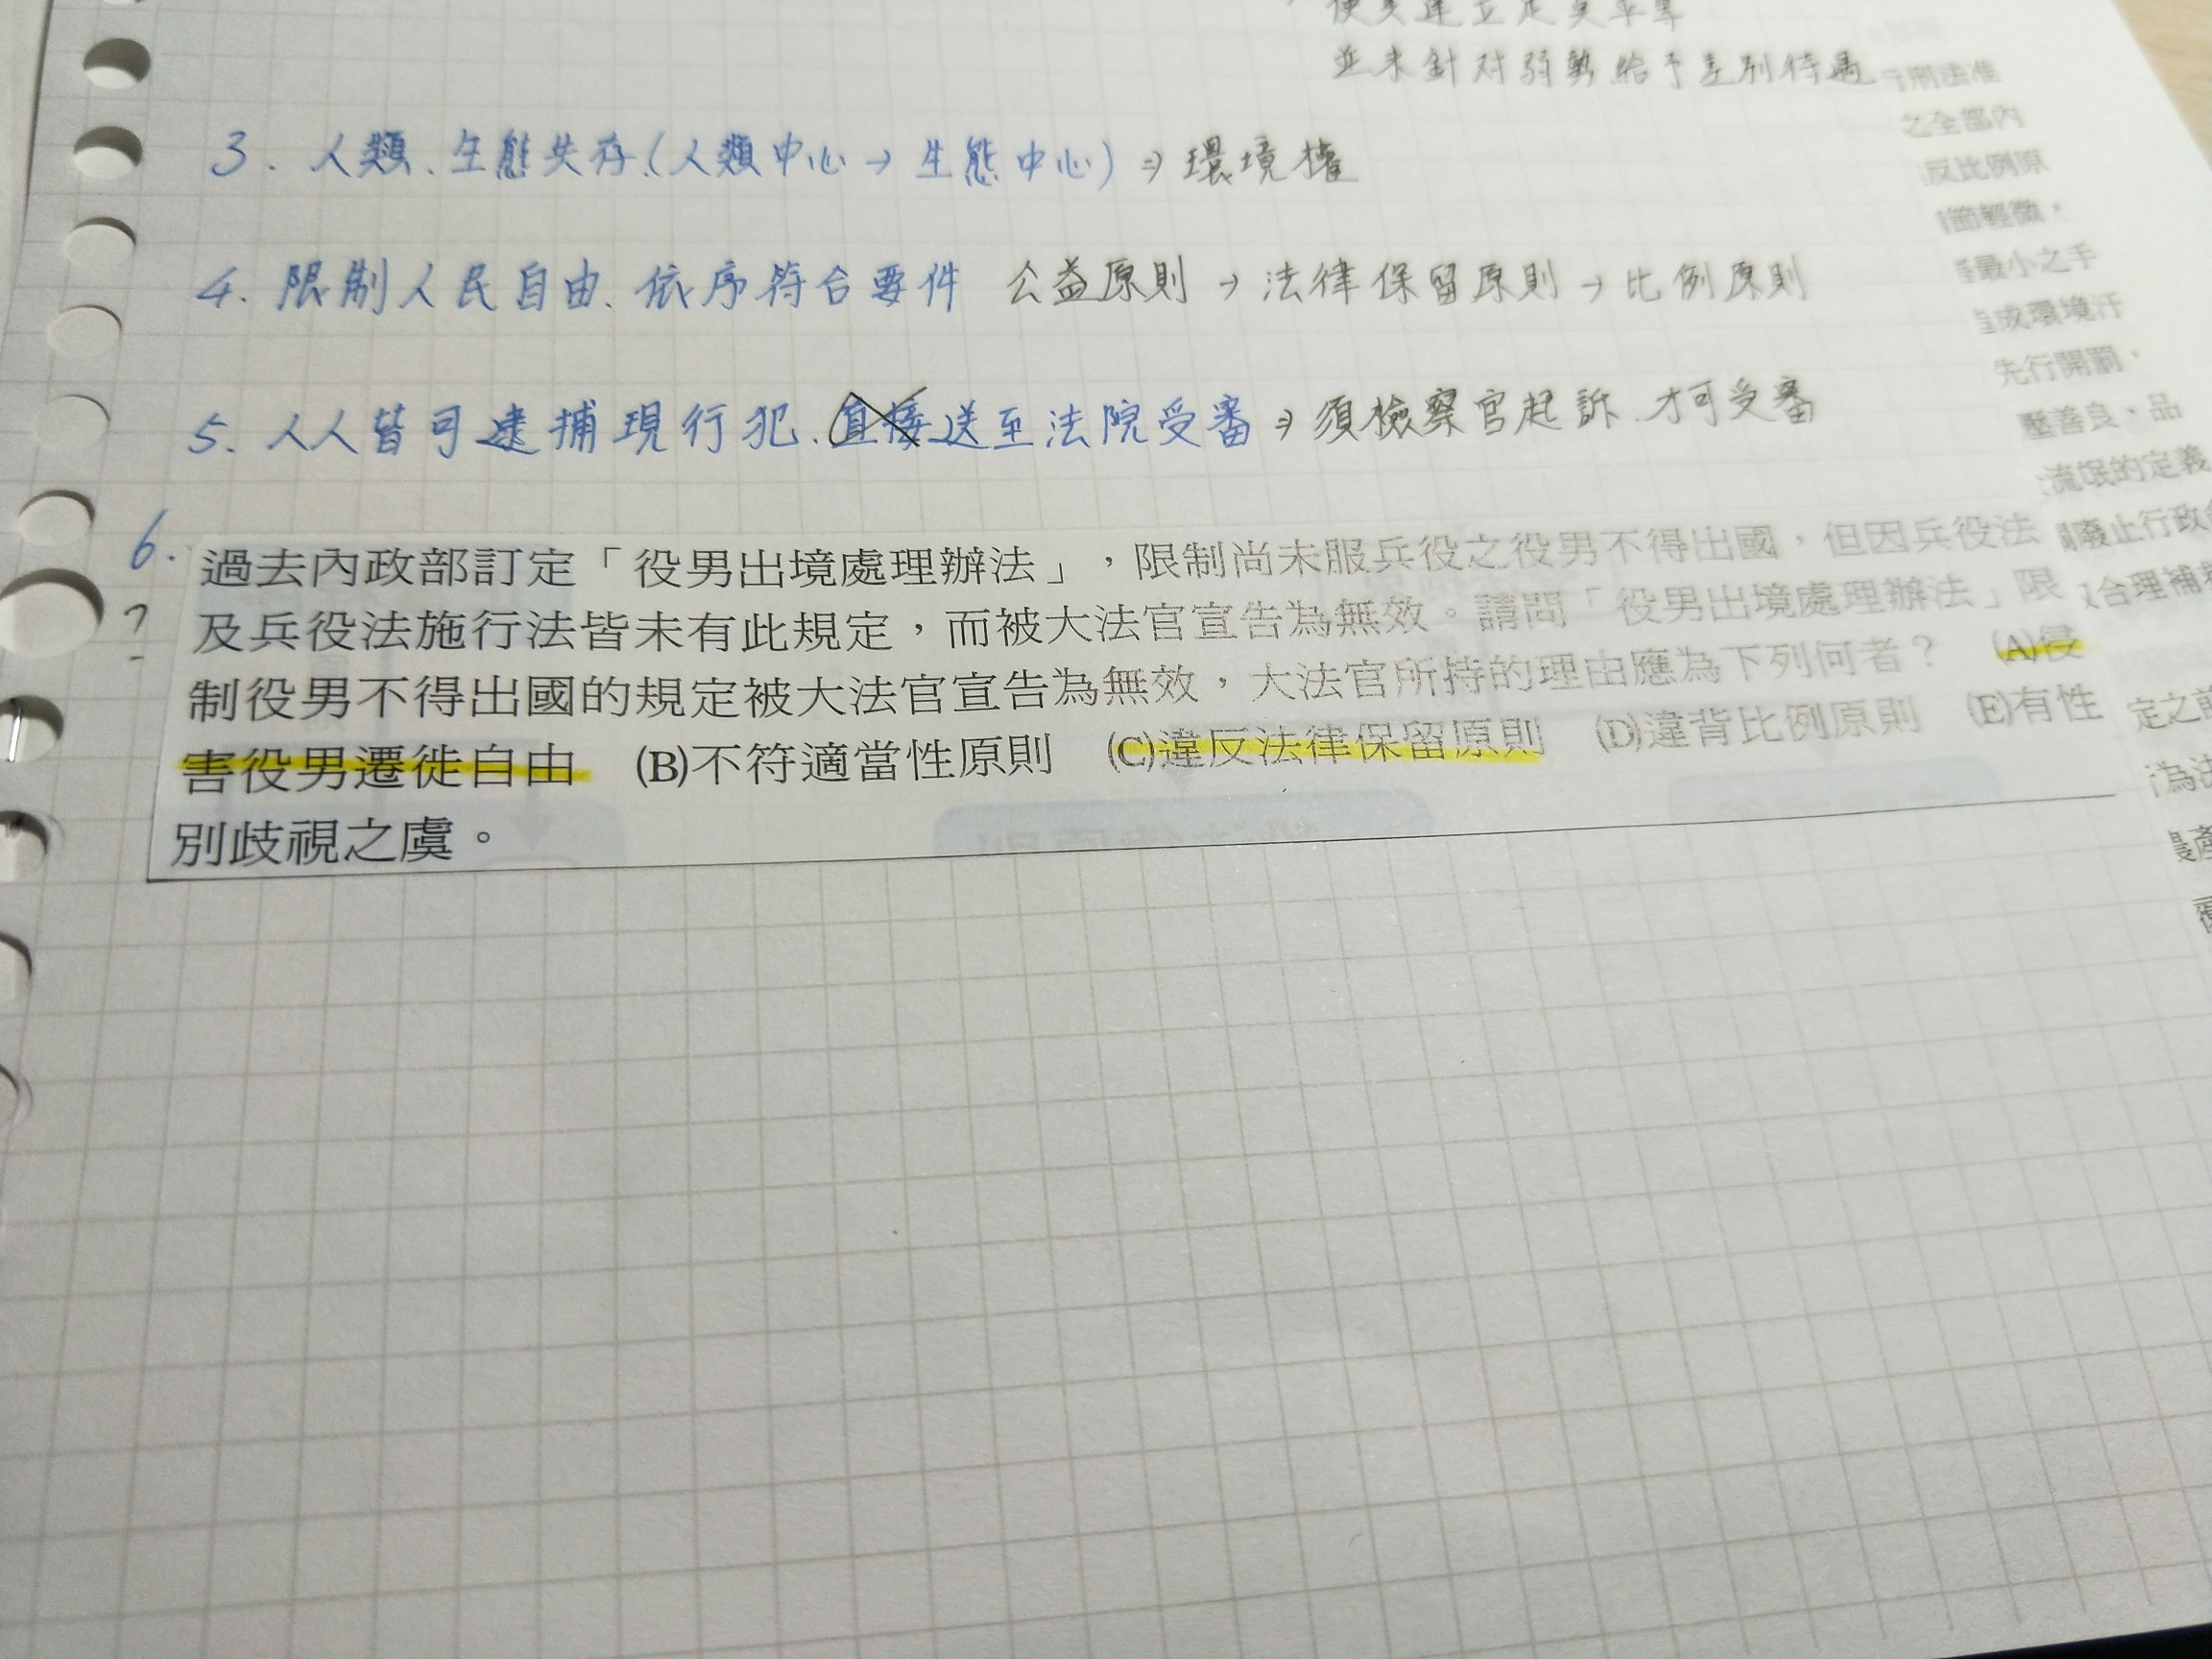 並未針对弱勢給予差別待遇
3. 人類、生態共存(人類中心→生態中心)⇒環境權
4. 限制人民自由、依序符合要件 公益原則→法律保留原則→比例原則
5. 人人皆可逮捕現行犯、直接送至法院受審⇒須檢察官起訴、才可受審
6.
?
過去內政部訂定「役男出境處理辦法」,限制尚未服兵役之役男不得出國,但因兵役法
及兵役法施行法皆未有此規定,而被大法官宣告為無效。請問「役男出境處理辦法」限
制役男不得出國的規定被大法官宣告為無效,大法官所持的理由應為下列何者? (A)侵
害役男遷徙自由 (B)不符適當性原則 (C)違反法律保留原則 (D)違背比例原則 (E)有性
別歧視之虞。
刑法准
之全部內
反比例原
節輕微,
最小之手
成環境汙
先行開罰,
壓善良、品
流氓的定義
廢止行政
合理補
定之前
為法
產